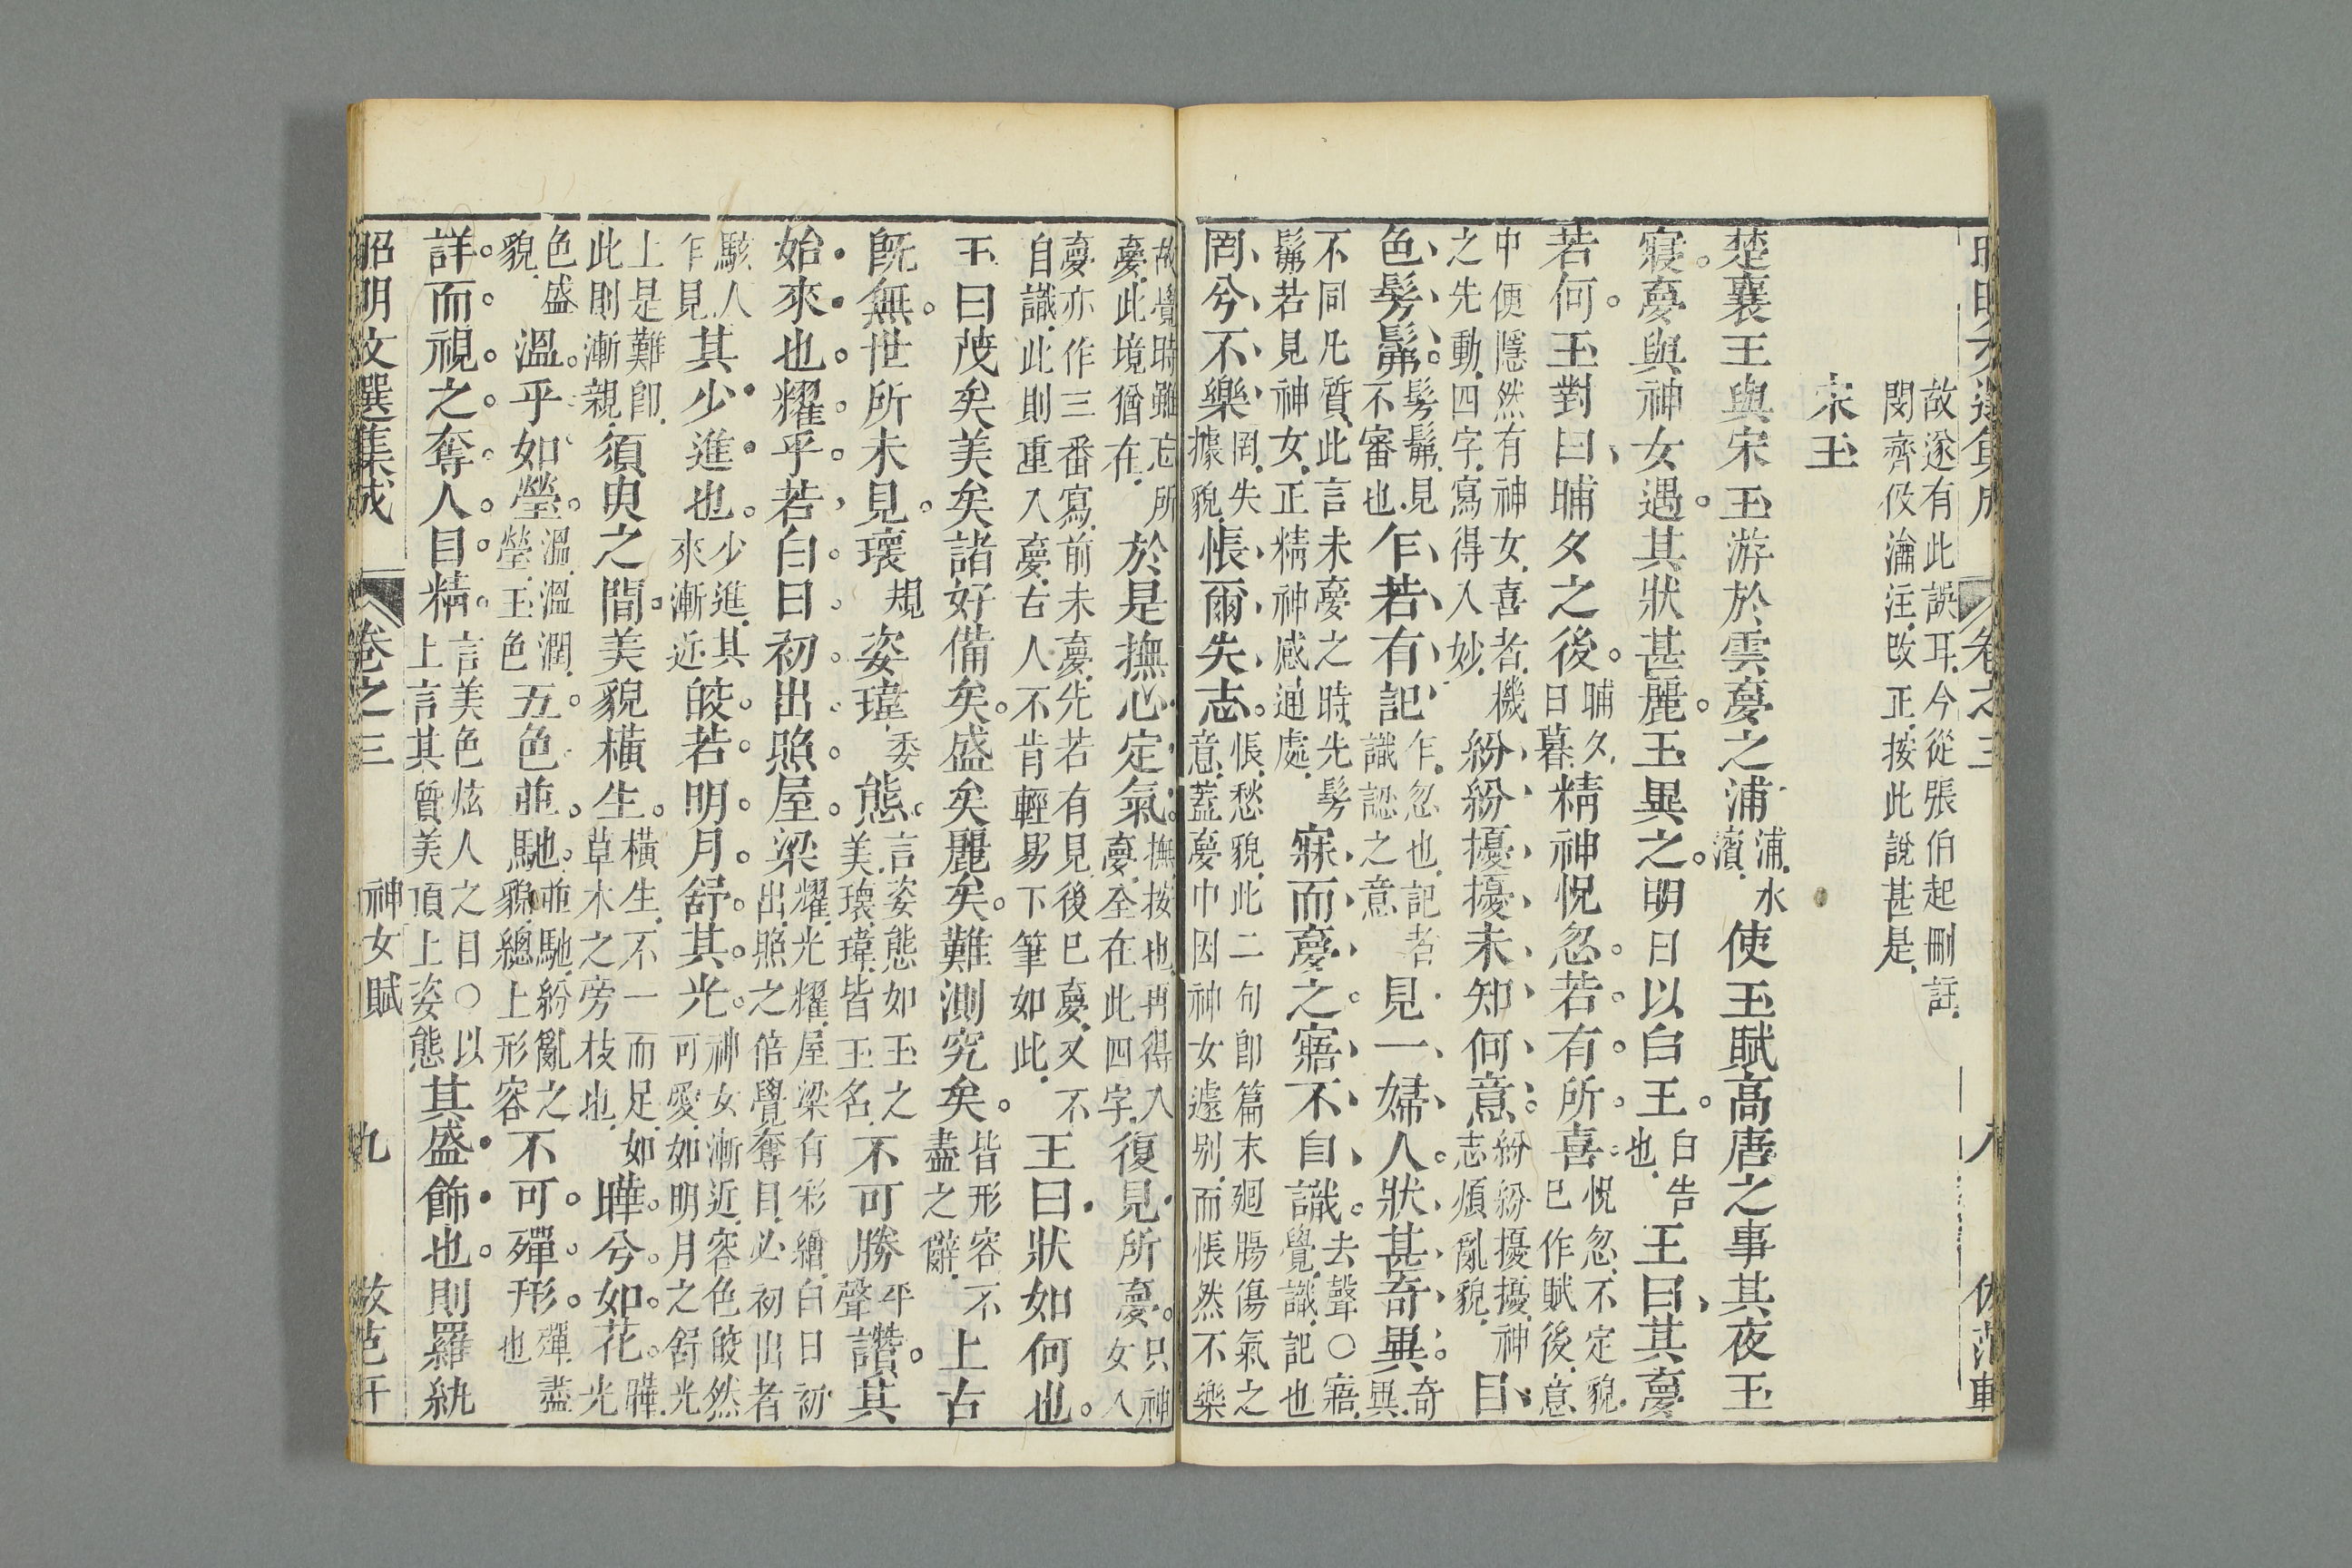 昭明文選集成 卷之三 八 倣范軒
故遂有此誤耳今從張伯起刪註閔齊伋瀹注改正按此說甚是
宋玉
楚襄王與宋玉游於雲夢之浦浦水濱使玉賦高唐之事其夜玉
寢夢與神女遇其狀甚麗玉異之明日以白王白告也王曰其夢
若何玉對曰晡夕之後晡夕日暮精神怳忽若有所喜怳忽不定貌已作賦後意
中便隱然有神女喜者機之先動四字寫得入妙紛紛擾擾未知何意紛紛擾擾神志煩亂貌目
色髣髴髣髴見不審也乍若有記乍忽也記者識認之意見一婦人狀甚奇異奇異
不同凡質此言未夢之時先髣髴若見神女正精神感通處寐而夢之寤不自識去聲○寤覺識記也
罔兮不樂罔失據貌悵爾失志悵愁貌此二句即篇末廻腸傷氣之意蓋夢中因神女遽別而悵然不樂
故覺時雖忘所夢此境猶在於是撫心定氣撫按也再得入夢全在此四字復見所夢只神女入
夢亦作三番寫前未夢先若有見後已夢又不自識此則重入夢古人不肯輕易下筆如此王曰狀如何也
玉曰茂矣美矣諸好備矣盛矣麗矣難測究矣皆形容不盡之辭上古
既無世所未見瓌規姿瑋委態言姿態如玉之美瓌瑋皆玉名不可勝平聲讚其
始來也耀乎若白日初出照屋梁耀光耀屋梁有彩繪白日初出照之倍覺奪目必初出者
駭人乍見其少進也少進其來漸近皎若明月舒其光神女漸近容色皎然可愛如明月之舒光
上是難即此則漸親須臾之間美貌橫生橫生不一而足如草木之旁枝也曄兮如花曄光
色盛貌溫乎如瑩溫溫潤瑩玉色五色並馳並馳紛亂之貌總上形容不可殫形殫盡也
詳而視之奪人目精言美色炫人之目○以上言其質美頂上姿態其盛飾也則羅紈
昭明文選集成 卷之三 神女賦 九 倣范軒